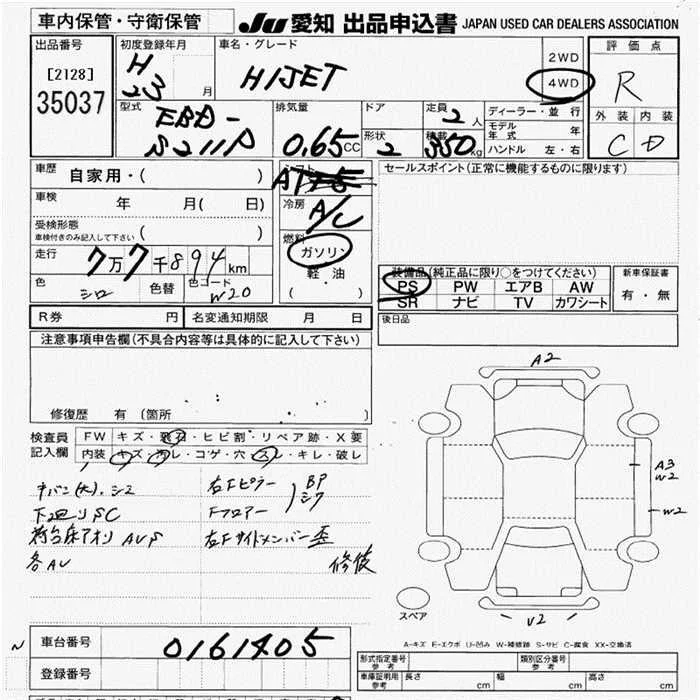 車内保管・守衛保管
JU 愛知 出品申込書 JAPAN USED CAR DEALERS ASSOCIATION
出品番号
[2128]
35037
初度登録年月
H 23 月
車名・グレード
HIJET
2WD
4WD
評価点
R
外装 内装
C D
型式
EBD-
S211P
排気量
0.65 CC
ドア
形状
2
定員 2 人
積載 350 kg
ディーラー・並行
モデル年式 年
ハンドル 左・右
車歴 自家用・( )
車検 年 月( 日)
受検形態
車検付きのみ記入して下さい ( )
走行 7万7千894km
色 シロ 色替 色コード W20
シフト AT
冷房 A/C
燃料
ガソリン
軽・油
( )
セールスポイント(正常に機能するものに限ります)
装備品(純正品に限り○をつけてください)
PS PW エアB AW
SR ナビ TV カワシート
新車保証書
有・無
後日品
R券 円 名変通知期限 月 日
注意事項申告欄(不具合内容等は具体的に記入して下さい)
修復歴 有(箇所
検査員
記入欄
FW キズ・飛石・ヒビ割・リペア跡・X要
内装 キズ・汚レ・コゲ・穴・スレ・キレ・破レ
右Fピラー
BP
下廻りSC
Fフロアー
シワ
荷台床アオリ AUP
右Fサイドメンバー歪
各AU
修復
A2
A3
W2
W2
U2
スペア
A-キズ E-エクボ U-凹み W-補修跡 S-サビ C-腐食 XX-交換済
車台番号 0161405
登録番号
形式指定番号
参考
類別区分番号
参考
車庫証明用
参考
長さ cm 幅 cm 高さ cm